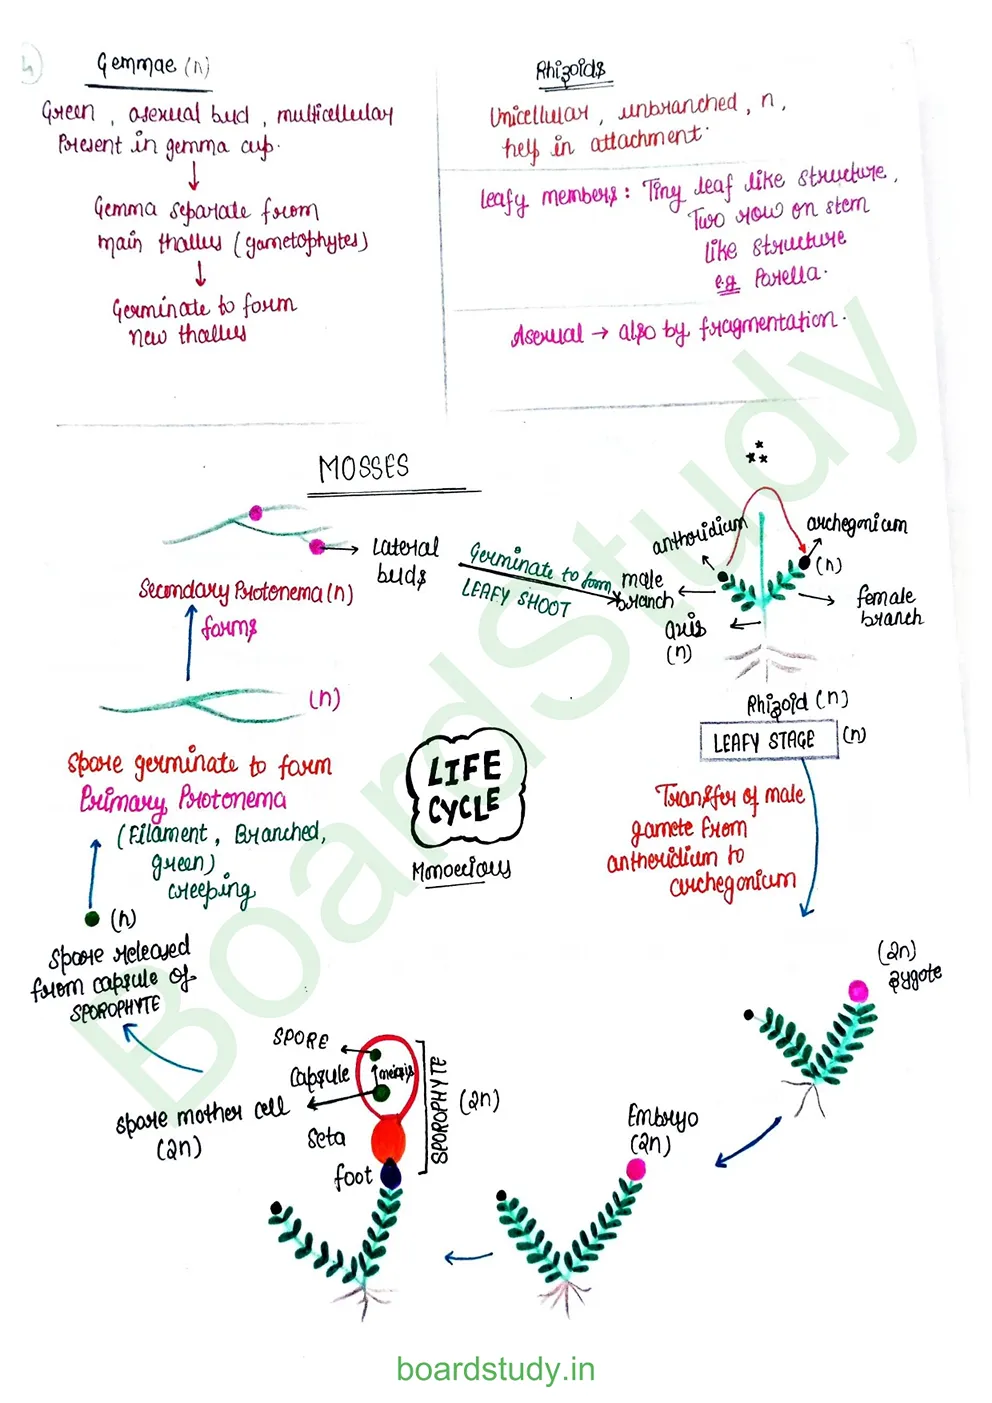 4
Gemmae (n)
Green, asexual bud, multicellular
Present in gemma cup.
↓
Gemma separate from
main thallus (gametophytes)
↓
Germinate to form
new thallus
Rhizoids
Unicellular, unbranched, n,
help in attachment.
Leafy members: Tiny leaf like structure,
Two row on stem
like structure
e.g. Porella.
Asexual → also by fragmentation.
MOSSES
Lateral
buds
Secondary Protonema (n)
forms
(n)
Spore germinate to form
Primary Protonema
(Filament, Branched,
green)
creeping
(n)
Spore released
from capsule of
SPOROPHYTE
Germinate to form
LEAFY SHOOT
antheridium
archegonium
(n)
male
branch
female
branch
axis
(n)
Rhizoid (n)
LEAFY STAGE (n)
LIFE
CYCLE
Monoecious
Transfer of male
gamete from
antheridium to
archegonium
(2n)
zygote
Embryo
(2n)
SPORE
Capsule
meiosis
spore mother cell
(2n)
Seta
foot
SPOROPHYTE
(2n)
BoardStudy
boardstudy.in